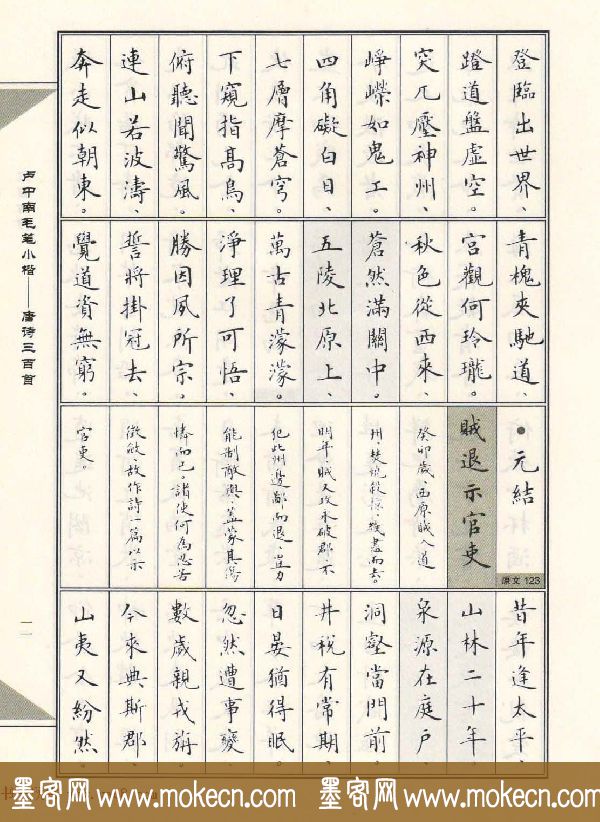 登臨出世界、
蹬道盤虛空。
突兀壓神州、
崢嶸如鬼工。
四角礙白日、
七層摩蒼穹。
下窺指高鳥、
俯聽聞驚風。
連山若波濤、
奔走似朝東。
青槐夾馳道、
宮觀何玲瓏。
秋色從西來、
蒼然滿關中。
五陵北原上、
萬古青濛濛。
淨理了可悟、
勝因夙所宗。
誓將掛冠去、
覺道資無窮。
•元結
賊退示官吏
原文 123
癸卯歲、西原賊入道
州、焚燒殺掠、幾盡而去。
明年、賊又攻永破郡、不
犯此州邊鄙而退、豈力
能制敵與、蓋蒙其傷
憐而已。諸使何為忍苦
徵斂、故作詩一篇以示
官吏。
昔年逢太平、
山林二十年。
泉源在庭戶、
洞壑當門前。
井稅有常期、
日晏猶得眠。
忽然遭事變、
數歲親戎旃。
今來典斯郡、
山夷又紛然。
卢中南毛笔小楷——唐诗三百首
一一
墨客网 www.mokecn.com 墨客网 www.mokecn.com